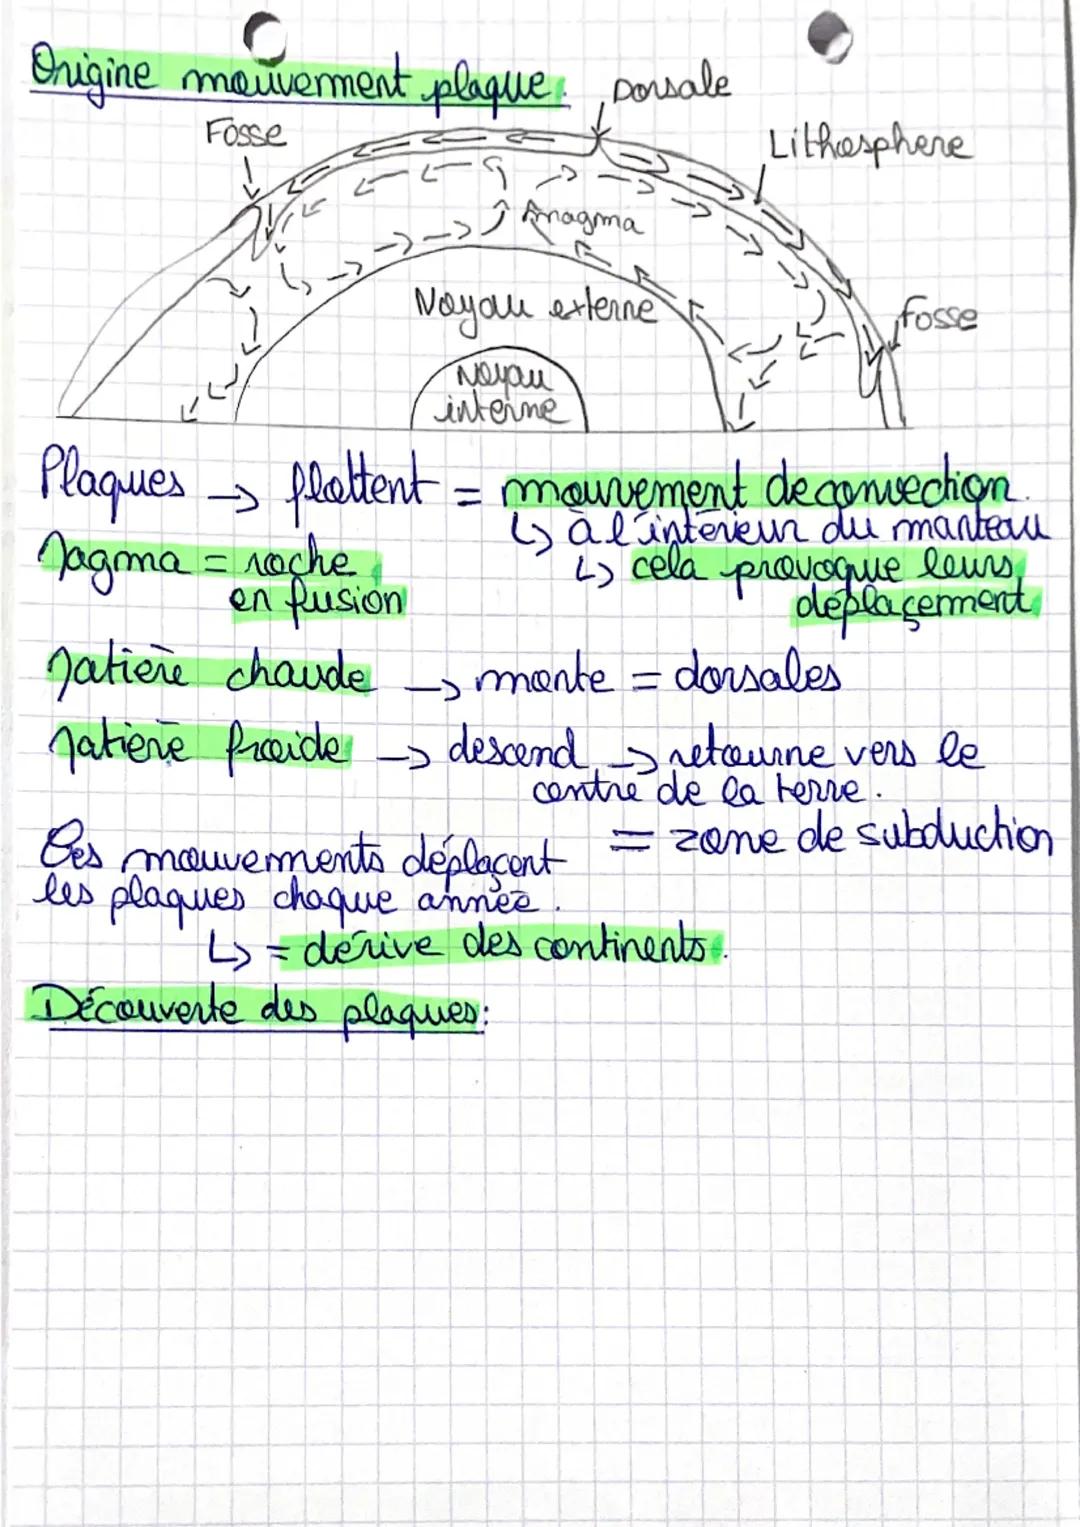 Origine mouvement plaque.
Dorsale
Fosse
Lithosphere
magma
Noyau externe
fosse
Noyau
interne
Plaques → flottent = mouvement de convection.
↳ à l'intérieur du manteau
Magma = roche
en fusion
↳ cela provoque leurs
déplacement
Matière chaude → monte = dorsales
Matière froide → descend → retourne vers le
centre de la terre.
= zone de subduction
Ces mouvements déplaçent
les plaques chaque année.
↳ = dérive des continents.
Découverte des plaques: